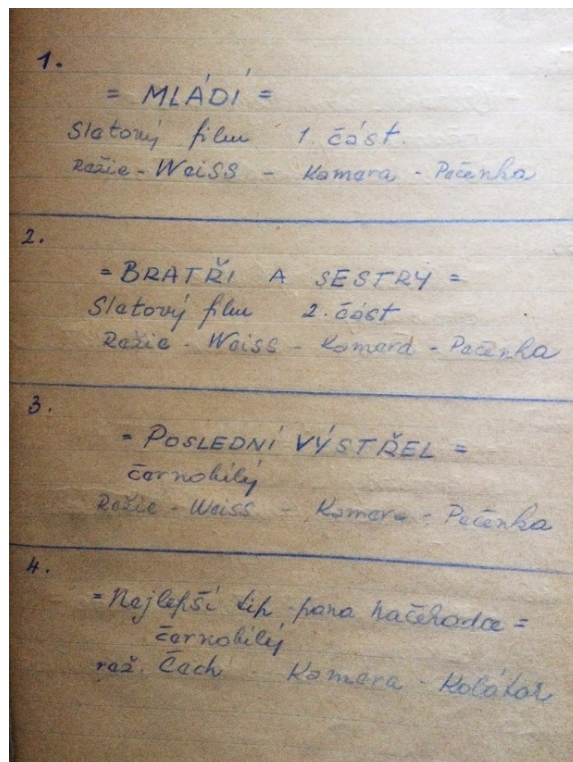 1.
= MLÁDÍ =
Sletový film 1. část.
Režie - Weiss - Kamera - Pečenka
2.
= BRATŘI A SESTRY =
Sletový film 2. část
Režie - Weiss - Kamera - Pečenka
3.
= POSLEDNÍ VÝSTŘEL =
černobílý
Režie - Weiss - Kamera - Pečenka
4.
= Nejlepší tip pana Načeradce =
černobílý
rež. Čech - Kamera - Kolátor